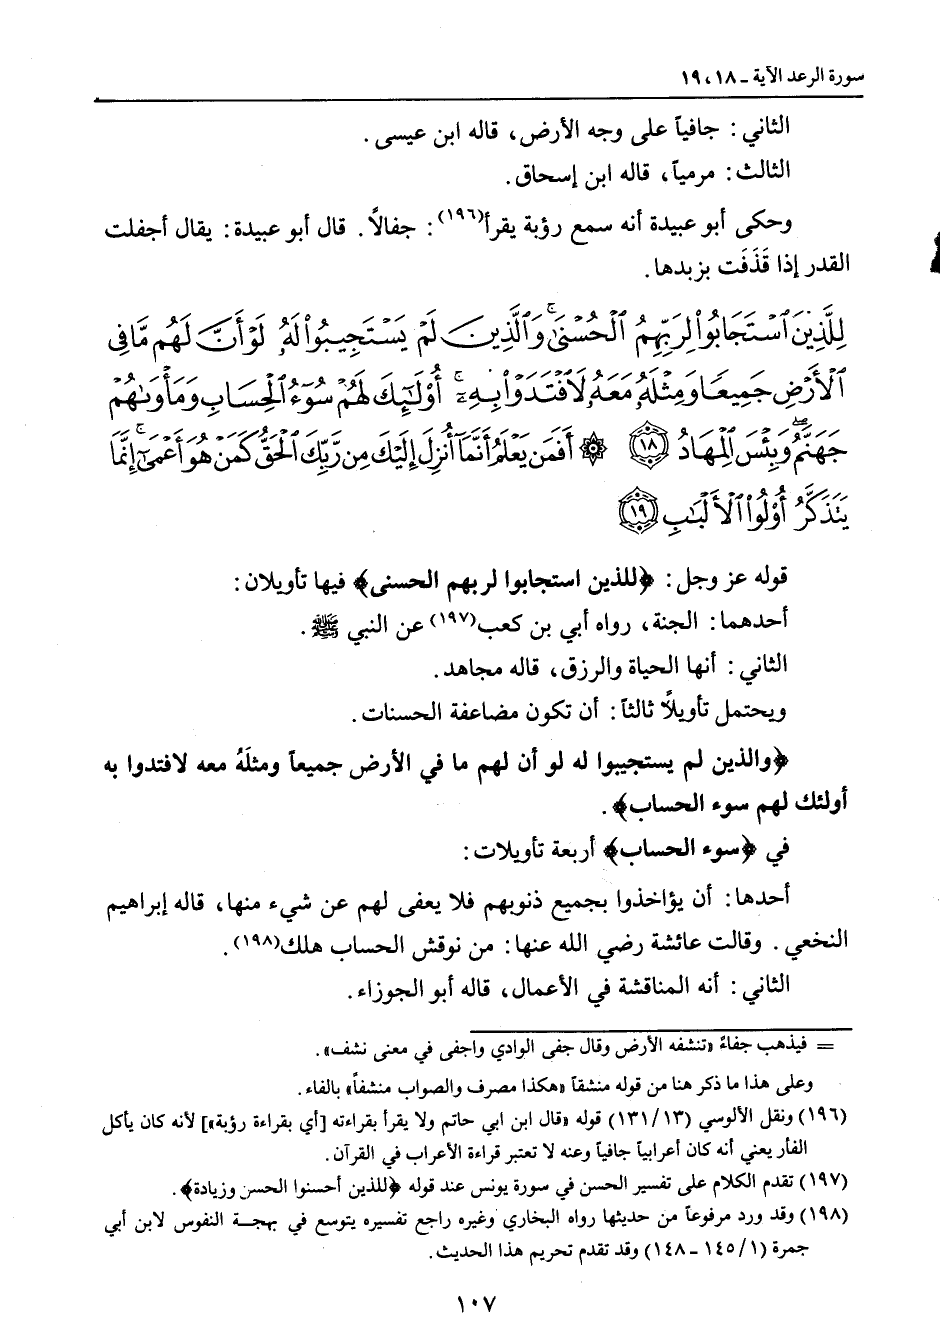 سورة الرعد الآية ـ ١٨، ١٩
الثاني : جافياً على وجه الأرض، قاله ابن عيسى.
الثالث: مرمياً، قاله ابن إسحاق.
وحكى أبو عبيدة أنه سمع رؤبة يقرأ(١٩٦): جفالاً. قال أبو عبيدة: يقال أجفلت
القدر إذا قَذَفَت بزبدها.
لِلَّذِينَ ٱسْتَجَابُوا۟ لِرَبِّهِمُ ٱلْحُسْنَىٰ ۚ وَٱلَّذِينَ لَمْ يَسْتَجِيبُوا۟ لَهُۥ لَوْ أَنَّ لَهُم مَّا فِى
ٱلْأَرْضِ جَمِيعًا وَمِثْلَهُۥ مَعَهُۥ لَٱفْتَدَوْا۟ بِهِۦٓ ۚ أُو۟لَٰٓئِكَ لَهُمْ سُوٓءُ ٱلْحِسَابِ وَمَأْوَىٰهُمْ
جَهَنَّمُ ۖ وَبِئْسَ ٱلْمِهَادُ ﴿١٨﴾ ۞ أَفَمَن يَعْلَمُ أَنَّمَآ أُنزِلَ إِلَيْكَ مِن رَّبِّكَ ٱلْحَقُّ كَمَنْ هُوَ أَعْمَىٰٓ ۚ إِنَّمَا
يَتَذَكَّرُ أُو۟لُوا۟ ٱلْأَلْبَٰبِ ﴿١٩﴾
قوله عز وجل: ﴿للذين استجابوا لربهم الحسنى﴾ فيها تأويلان:
أحدهما: الجنة، رواه أبي بن كعب(١٩٧) عن النبي ﷺ.
الثاني: أنها الحياة والرزق، قاله مجاهد.
ويحتمل تأويلًا ثالثاً: أن تكون مضاعفة الحسنات.
﴿والذين لم يستجيبوا له لو أن لهم ما في الأرض جميعاً ومثلَهُ معه لافتدوا به
أولئك لهم سوء الحساب﴾.
في ﴿سوء الحساب﴾ أربعة تأويلات:
أحدها: أن يؤاخذوا بجميع ذنوبهم فلا يعفى لهم عن شيء منها، قاله إبراهيم
النخعي. وقالت عائشة رضي الله عنها: من نوقش الحساب هلك(١٩٨).
الثاني: أنه المناقشة في الأعمال، قاله أبو الجوزاء.
= فيذهب جفاءً «تنشفه الأرض وقال جفى الوادي واجفى في معنى نشف».
وعلى هذا ما ذكر هنا من قوله منشقاً «هكذا مصرف والصواب منشفاً» بالفاء.
(١٩٦) ونقل الألوسي (١٣١/١٣) قوله «قال ابن ابي حاتم ولا يقرأ بقراءته [أي بقراءة رؤبة»] لأنه كان يأكل
الفأر يعني أنه كان أعرابياً جافياً وعنه لا تعتبر قراءة الأعراب في القرآن.
(١٩٧) تقدم الكلام على تفسير الحسن في سورة يونس عند قوله ﴿للذين أحسنوا الحسن وزيادة﴾.
(١٩٨) وقد ورد مرفوعاً من حديثها رواه البخاري وغيره راجع تفسيره يتوسع في بهجة النفوس لابن أبي
جمرة (١/ ١٤٥ ـ ١٤٨) وقد تقدم تحريم هذا الحديث.
١٠٧